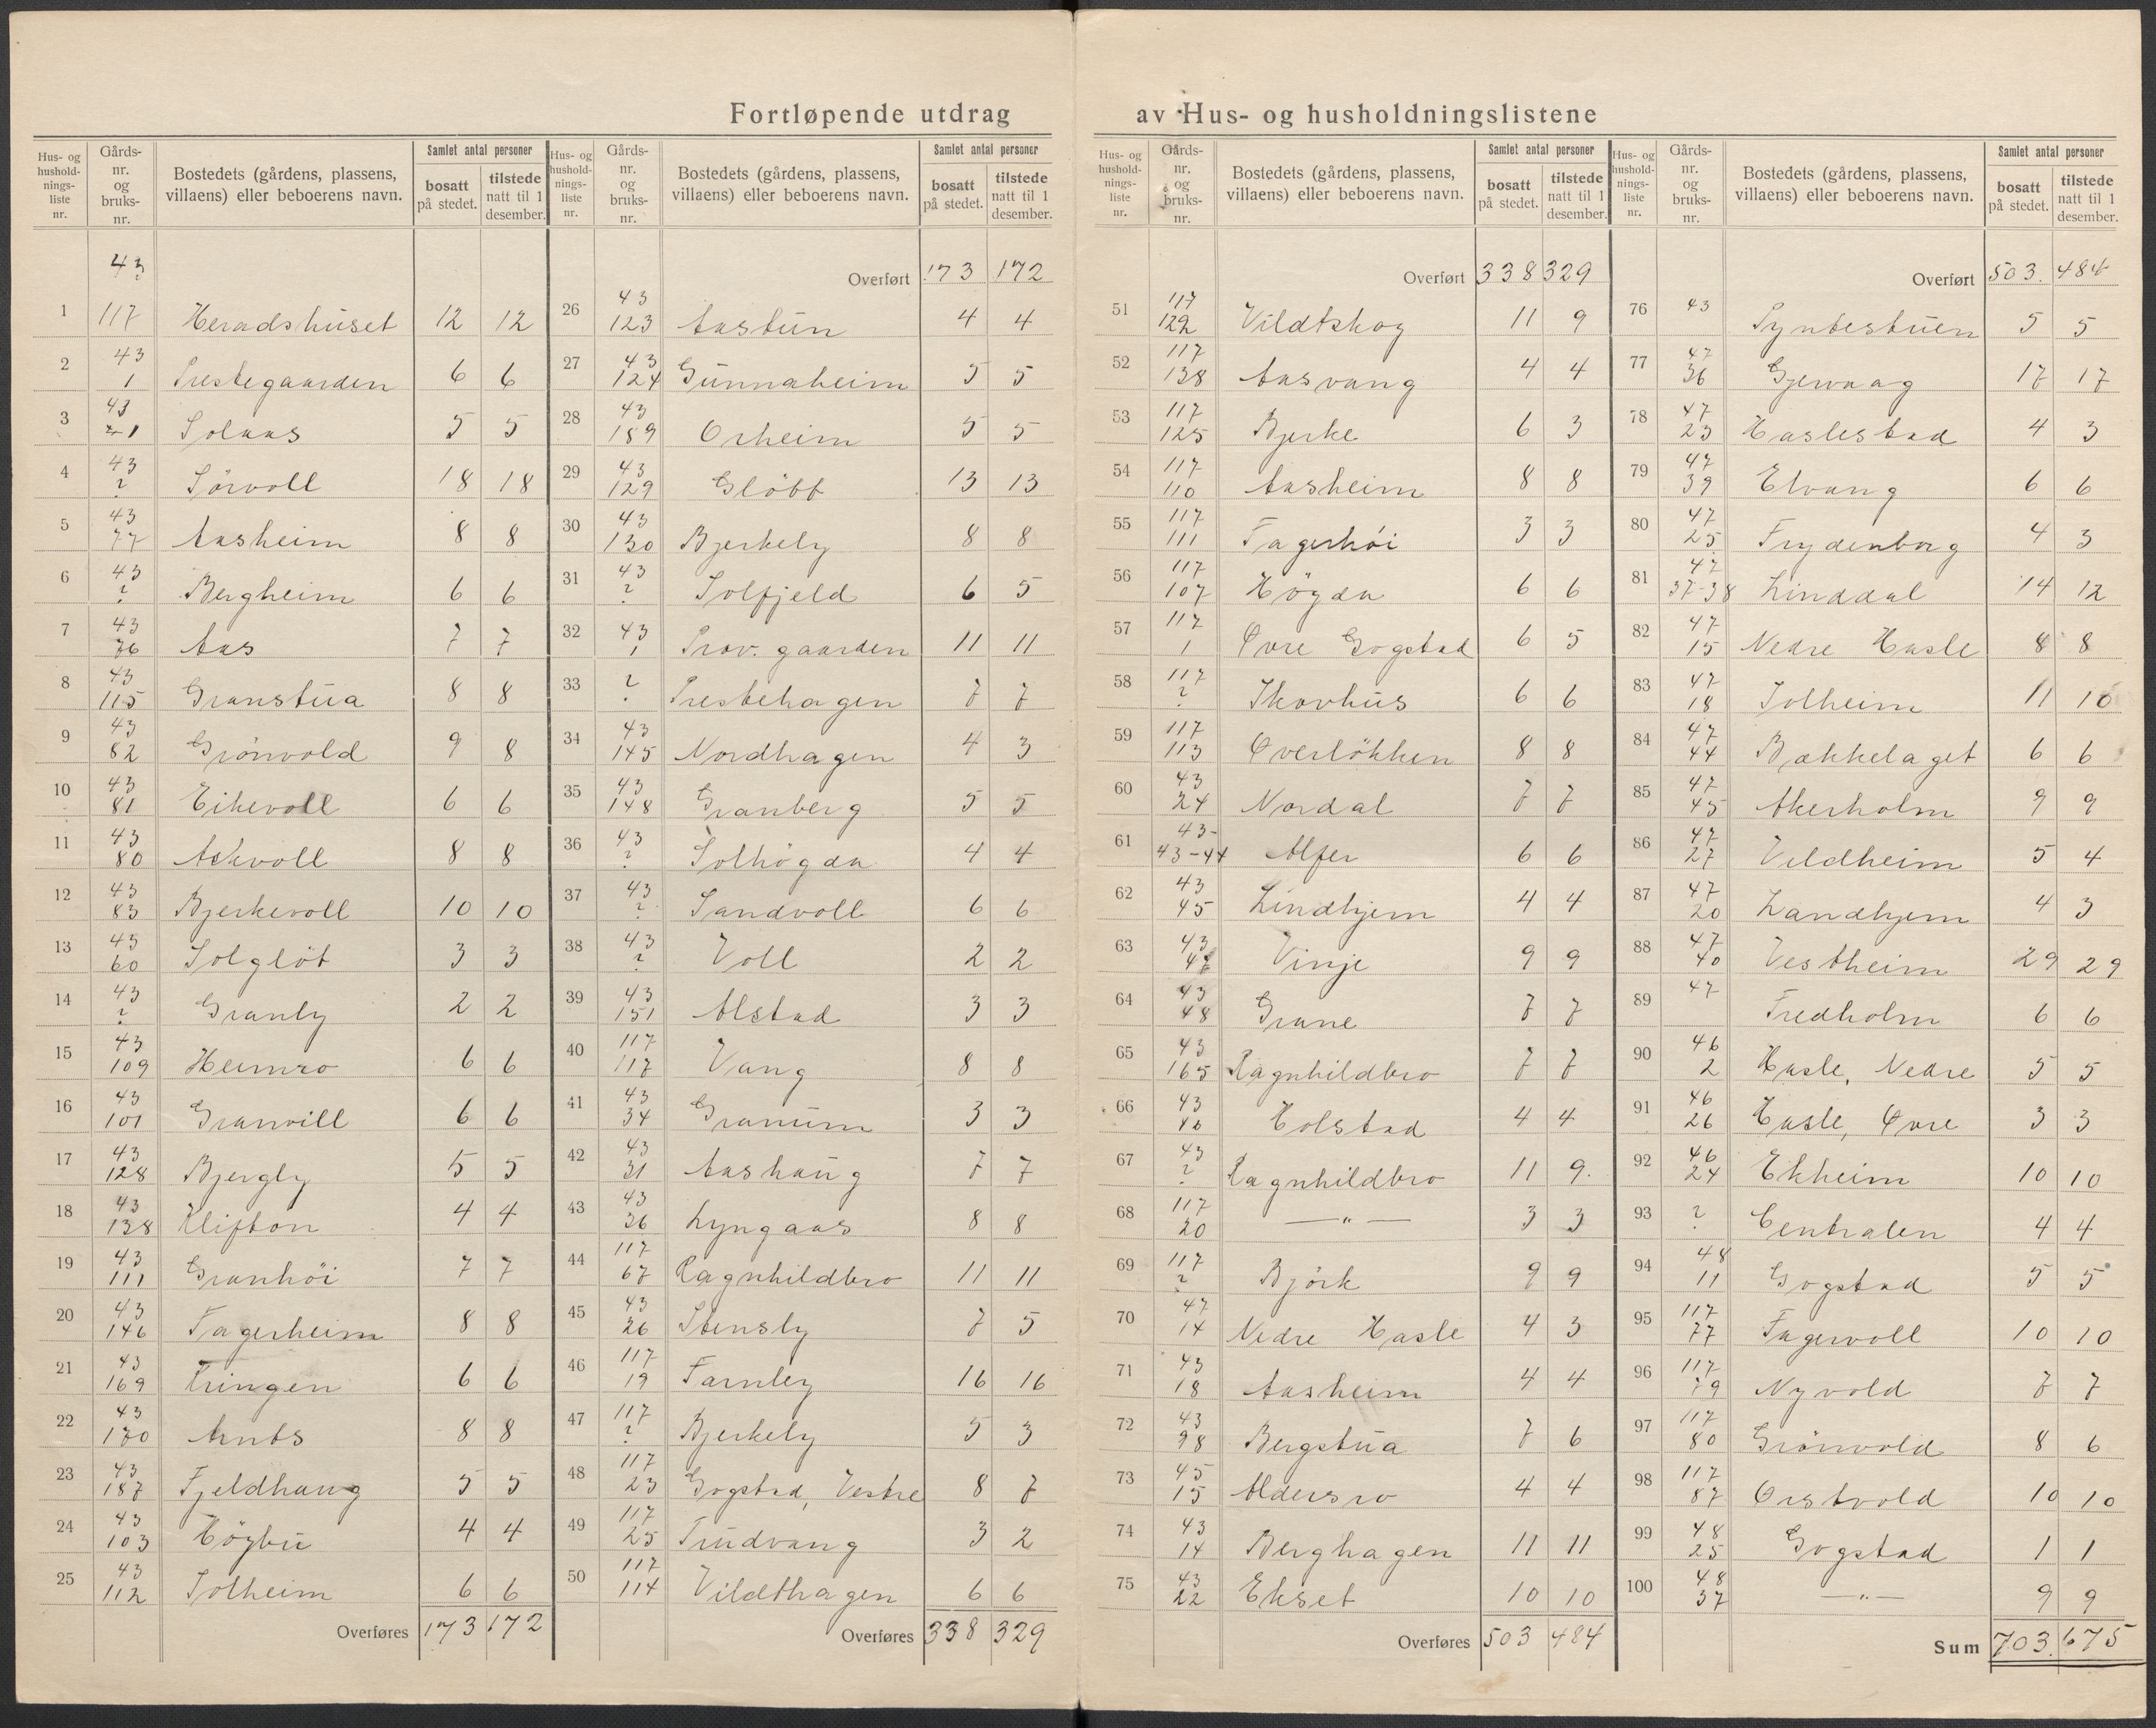 Fortløpende utdrag av Hus- og husholdningslistene
Hus- og husholdningsliste nr. | Gårdsnr. og bruksnr. | Bostedets (gårdens, plassens, villaens) eller beboerens navn. | Samlet antal personer bosatt på stedet. | tilstede natt til 1 desember.
43 ?
1 | 117 | Heradshuset | 12 | 12
2 | 43 1 | Prestegaarden | 6 | 6
3 | 43 21 | Solaas | 5 | 5
4 | 43 ? | Sörvoll | 18 | 18
5 | 43 77 | Aasheim | 8 | 8
6 | 43 ? | Bergheim | 6 | 6
7 | 43 76 | Aas | 7 | 7
8 | 43 115 | Granstua | 8 | 8
9 | 43 82 | Grönvold | 9 | 8
10 | 43 81 | Eikevoll | 6 | 6
11 | 43 80 | Askvoll | 8 | 8
12 | 43 83 | Bjerkevoll | 10 | 10
13 | 43 60 | Solglöt | 3 | 3
14 | 43 ? | Granly | 2 | 2
15 | 43 109 | Heimro | 6 | 6
16 | 43 101 | Granvill | 6 | 6
17 | 43 128 | Bjergly | 5 | 5
18 | 43 138 | Klifton | 4 | 4
19 | 43 111 | Granhöi | 7 | 7
20 | 43 146 | Fagerheim | 8 | 8
21 | 43 169 | Kringen | 6 | 6
22 | 43 170 | Arnts | 8 | 8
23 | 43 187 | Fjeldhaug | 5 | 5
24 | 43 103 | Högbu | 4 | 4
25 | 43 112 | Solheim | 6 | 6
Overføres | 173 | 172
Hus- og husholdningsliste nr. | Gårdsnr. og bruksnr. | Bostedets (gårdens, plassens, villaens) eller beboerens navn. | Samlet antal personer bosatt på stedet. | tilstede natt til 1 desember.
Overført | 173 | 172
26 | 43 123 | Aastun | 4 | 4
27 | 43 124 | Gunnaheim | 5 | 5
28 | 43 189 | Orheim | 5 | 5
29 | 43 129 | Glöbt | 13 | 13
30 | 43 130 | Bjerkely | 8 | 8
31 | 43 ? | Solfjeld | 6 | 5
32 | 43 1 | Prov. gaarden | 11 | 11
33 | ? | Prestehagen | 7 | 7
34 | 43 145 | Nordhagen | 4 | 3
35 | 43 148 | Granberg | 5 | 5
36 | 43 ? | Solhögda | 4 | 4
37 | 43 ? | Sandvoll | 6 | 6
38 | 43 ? | Voll | 2 | 2
39 | 43 151 | Alstad | 3 | 3
40 | 117 117 | Vang | 8 | 8
41 | 43 34 | Granum | 3 | 3
42 | 43 31 | Aashaug | 7 | 7
43 | 43 36 | Lyngaas | 8 | 8
44 | 117 67 | Ragnhildbro | 11 | 11
45 | 43 26 | Stensly | 7 | 5
46 | 117 19 | Farnley | 16 | 16
47 | 117 ? | Bjerkely | 5 | 3
48 | 117 23 | Gogstad, Vestre | 8 | 7
49 | 117 25 | Trudvang | 3 | 2
50 | 117 114 | Vildthagen | 6 | 6
Overføres | 338 | 329
Hus- og husholdningsliste nr. | Gårdsnr. og bruksnr. | Bostedets (gårdens, plassens, villaens) eller beboerens navn. | Samlet antal personer bosatt på stedet. | tilstede natt til 1 desember.
Overført | 338 | 329
51 | 117 122 | Vildtskog | 11 | 9
52 | 117 138 | Aasvang | 4 | 4
53 | 117 125 | Bjerke | 6 | 3
54 | 117 110 | Aasheim | 8 | 8
55 | 117 111 | Fagerhöi | 3 | 3
56 | 117 107 | Högda | 6 | 6
57 | 117 1 | Øvre Gogstad | 6 | 5
58 | 117 ? | Skovhus | 6 | 6
59 | 117 113 | Øverlökken | 8 | 8
60 | 43 24 | Nordal | 7 | 7
61 | 43- 43-44 | Alfer | 6 | 6
62 | 43 45 | Lindhjem | 4 | 4
63 | 43 47 | Vinje | 9 | 9
64 | 43 48 | Grane | 7 | 7
65 | 43 165 | Ragnhildbro | 7 | 7
66 | 43 46 | Holstad | 4 | 4
67 | 43 ? | Ragnhildbro | 11 | 9.
68 | 117 20 | — " — | 3 | 3
69 | 117 ? | Björk | 9 | 9
70 | 47 14 | Nedre Hasle | 4 | 3
71 | 43 18 | Aasheim | 4 | 4
72 | 43 98 | Bergstua | 7 | 6
73 | 45 15 | Aldersro | 4 | 4
74 | 43 14 | Berghagen | 11 | 11
75 | 43 22 | Ekset | 10 | 10
Overføres | 503 | 484
Hus- og husholdningsliste nr. | Gårdsnr. og bruksnr. | Bostedets (gårdens, plassens, villaens) eller beboerens navn. | Samlet antal personer bosatt på stedet. | tilstede natt til 1 desember.
Overført | 503. | 484
76 | 43 | Pyntestuen | 5 | 5
77 | 47 36 | Gjervaag | 17 | 17
78 | 47 23 | Haslestad | 4 | 3
79 | 47 39 | Elvang | 6 | 6
80 | 47 25 | Frydenborg | 4 | 3
81 | 47 37-38 | Linddal | 14 | 12
82 | 47 15 | Nedre Hasle | 8 | 8
83 | 47 18 | Solheim | 11 | 10
84 | 47 44 | Bækkelaget | 6 | 6
85 | 47 45 | Akerholm | 9 | 9
86 | 47 27 | Veldheim | 5 | 4
87 | 47 20 | Landhjem | 4 | 3
88 | 47 40 | Vestheim | 29 | 29
89 | 47 | Fredholm | 6 | 6
90 | 46 2 | Hasle, Nedre | 5 | 5
91 | 46 26 | Hasle, Øvre | 3 | 3
92 | 46 24 | Ekheim | 10 | 10
93 | ? | Centralen | 4 | 4
94 | 48 11 | Gogstad | 5 | 5
95 | 117 77 | Fagervoll | 10 | 10
96 | 117 79 | Nyvold | 7 | 7
97 | 117 80 | Grönvold | 8 | 6
98 | 117 87 | Orstvold | 10 | 10
99 | 48 25 | Gogstad | 1 | 1
100 | 48 37 | — " — | 9 | 9
Sum | 703. | 675